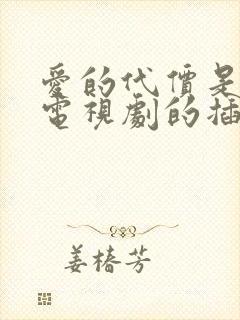 愛的代價是
電視劇的插
姜椿芳